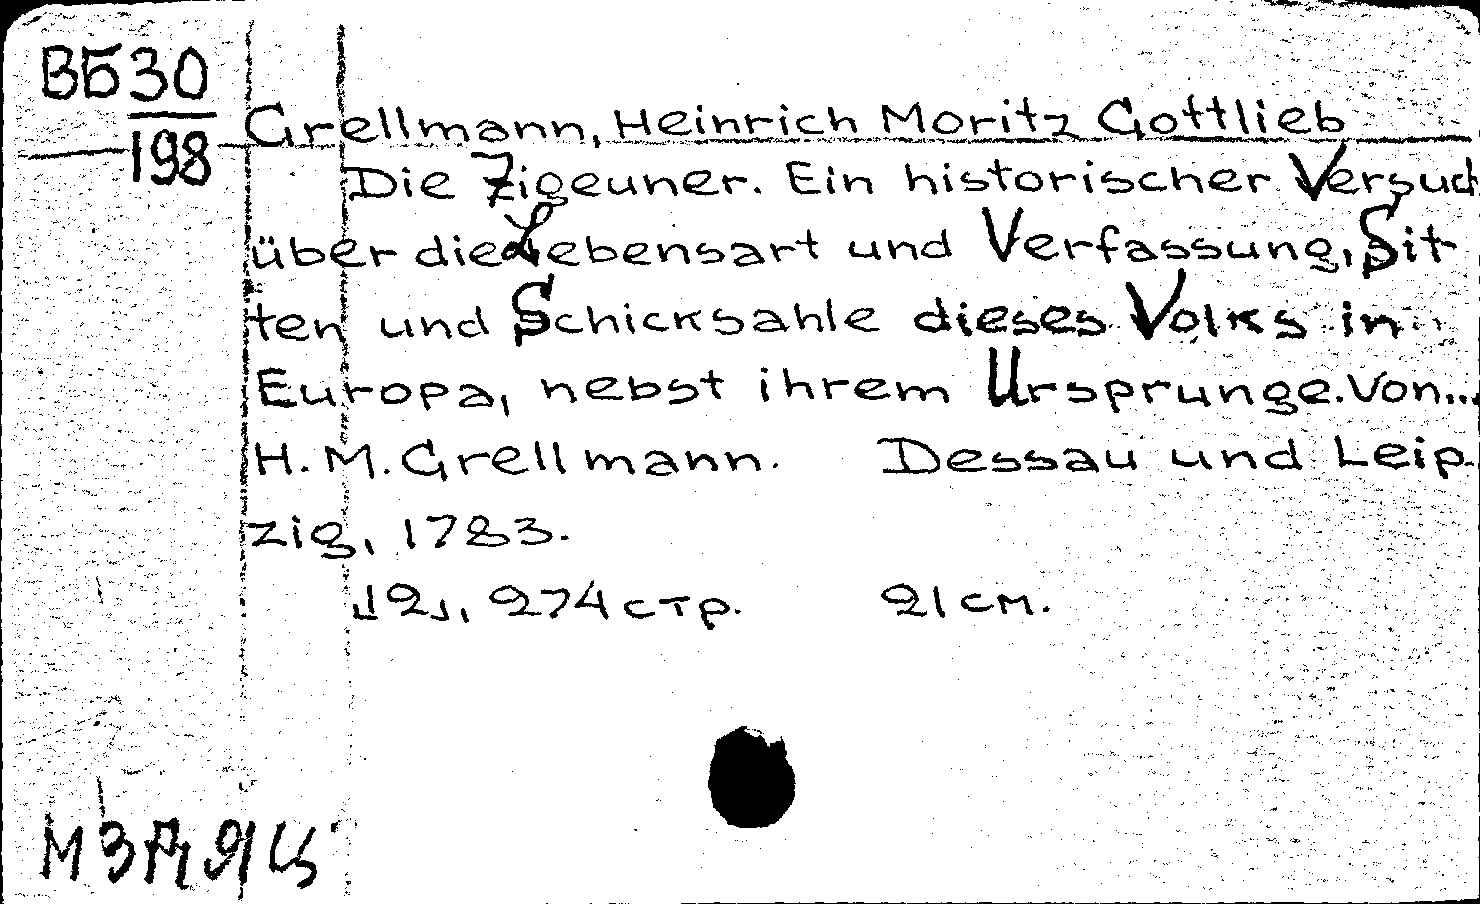 ВБ30
198
Grellmann, Heinrich Moritz Gottlieb
Die Zigeuner. Ein historischer Versuch
über die Lebensart und Verfassung, Sit-
ten und Schicksahle dieses Volks in
Europa, nebst ihrem Ursprunge. Von...
H. M. Grellmann. Dessau und Leip-
zig, 1783.
[2], 274 стр. 21 см.